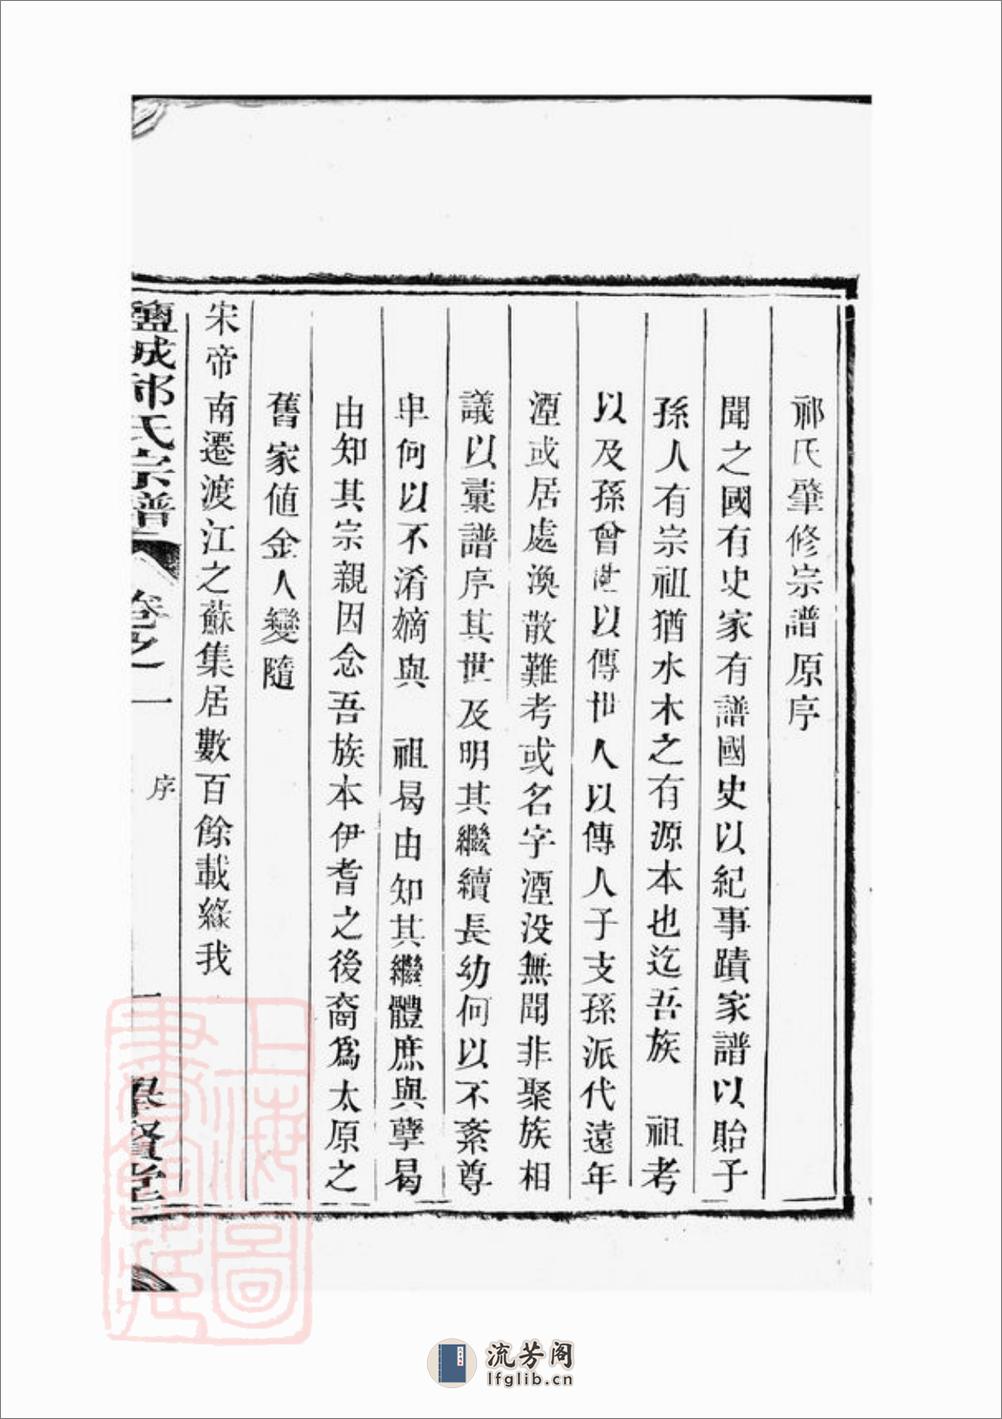 祁氏肇修宗譜原序
聞之國有史家有譜國史以紀事蹟家譜以貽子
孫人有宗祖猶水木之有源本也迄吾族　祖考
以及孫曾世以傳世人以傳人子支孫派代遠年
湮或居處渙散難考或名字湮没無聞非聚族相
議以彙譜序其世及明其繼續長幼何以不紊尊
卑何以不淆嫡與　祖曷由知其繼體庶與孽曷
由知其宗親因念吾族本伊耆之後裔爲太原之
舊家值金人變隨
宋帝南遷渡江之蘇集居數百餘載緣我
鹽城祁氏宗譜
卷之一
序
一
舉賢堂
上海圖書館藏
流芳阁
lfglib.cn